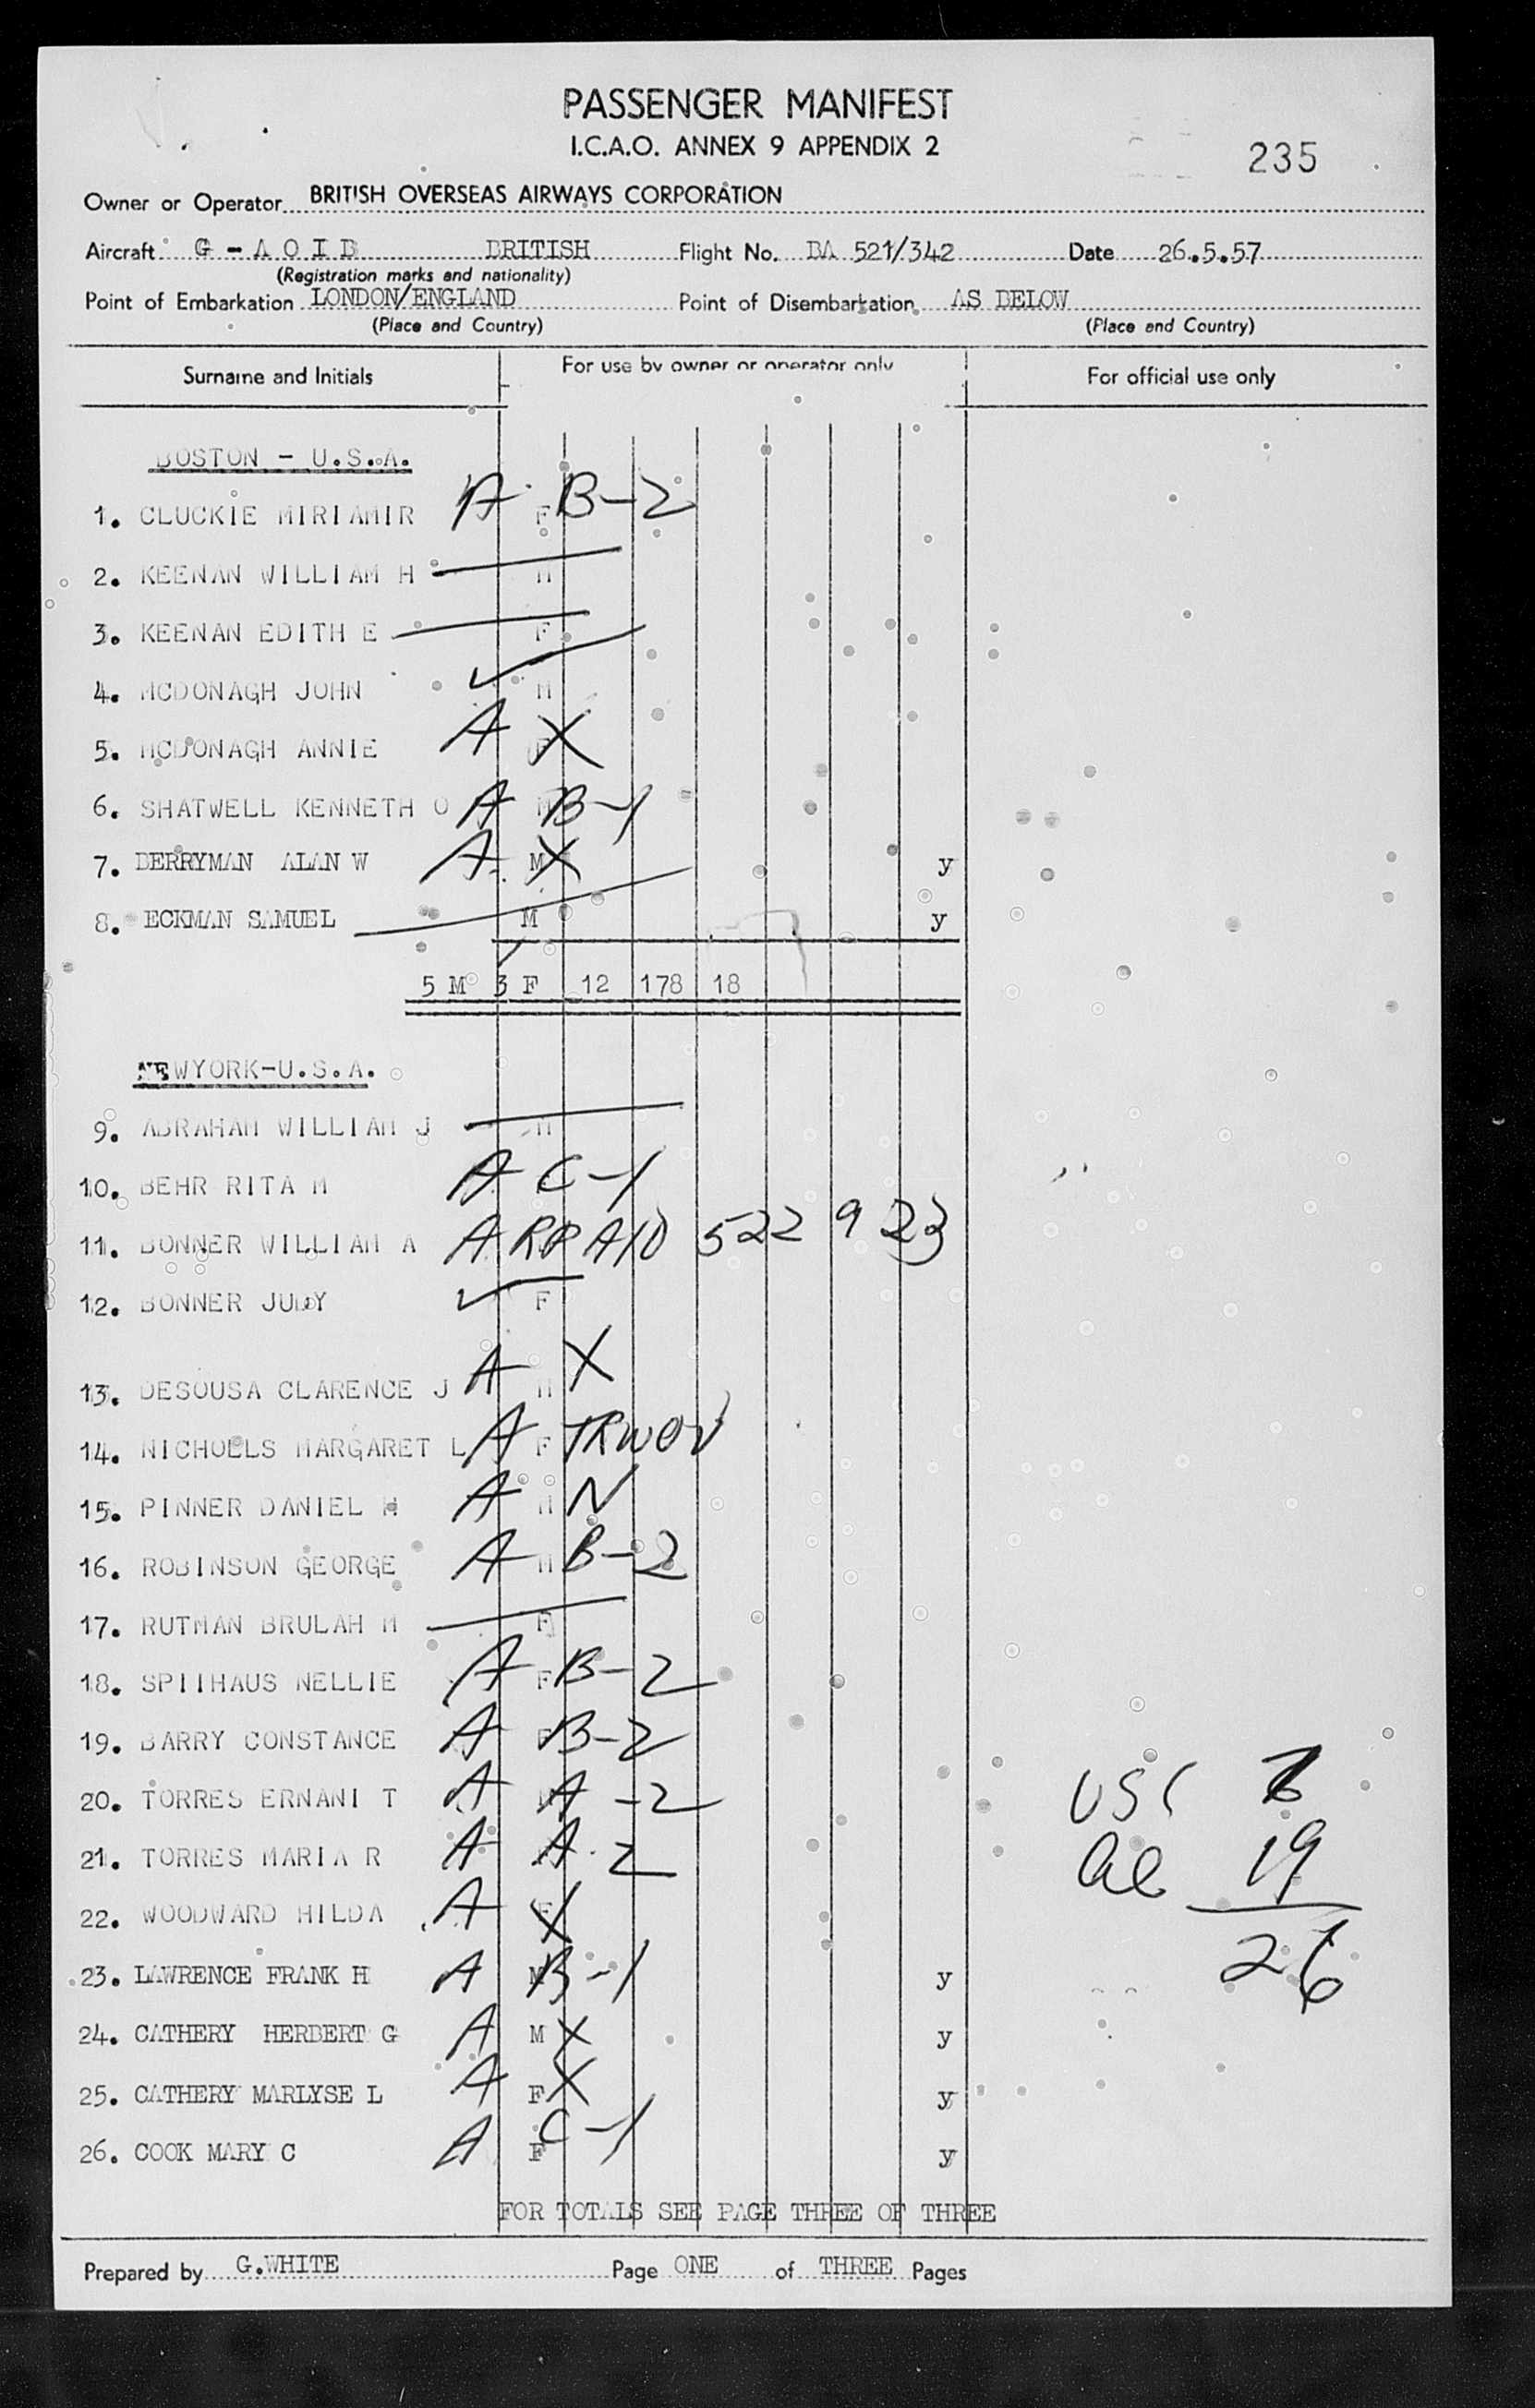 PASSENGER MANIFEST
I.C.A.O. ANNEX 9 APPENDIX 2
235
Owner or Operator BRITISH OVERSEAS AIRWAYS CORPORATION
Aircraft G - A O I B BRITISH Flight No. BA 521/342 Date 26.5.57
(Registration marks and nationality)
Point of Embarkation LONDON/ENGLAND Point of Disembarkation AS BELOW
(Place and Country) (Place and Country)
Surname and Initials For use by owner or operator only For official use only
BOSTON - U.S.A.
1. CLUCKIE MIRIAMIR A F B-2
2. KEENAN WILLIAM H M
3. KEENAN EDITH E F
4. MCDONAGH JOHN ✓ M
5. MCDONAGH ANNIE A X
6. SHATWELL KENNETH O A M B-1
7. BERRYMAN ALAN W A M X y
8. ECKMAN SAMUEL M y
5 M 3 F 12 178 18
NEWYORK-U.S.A.
9. ABRAHAM WILLIAM J M
10. BEHR RITA M A C-1
11. BONNER WILLIAM A A RP A10 522 9 23
12. BONNER JUDY ✓ F
13. DESOUSA CLARENCE J A M X
14. NICHOLLS MARGARET L A F TRWOV
15. PINNER DANIEL M A M N
16. ROBINSON GEORGE A M B-2
17. RUTMAN BRULAH M F
18. SPIIHAUS NELLIE A F B-2
19. BARRY CONSTANCE A F B-2
20. TORRES ERNANI T A A-2
21. TORRES MARIA R A A-2
22. WOODWARD HILDA A F X
23. LAWRENCE FRANK H A M B-1 y
24. CATHERY HERBERT G A M X y
25. CATHERY MARLYSE L A F X y
26. COOK MARY C A F C-1 y
USC 7
al 19
26
FOR TOTALS SEE PAGE THREE OF THREE
Prepared by G.WHITE Page ONE of THREE Pages